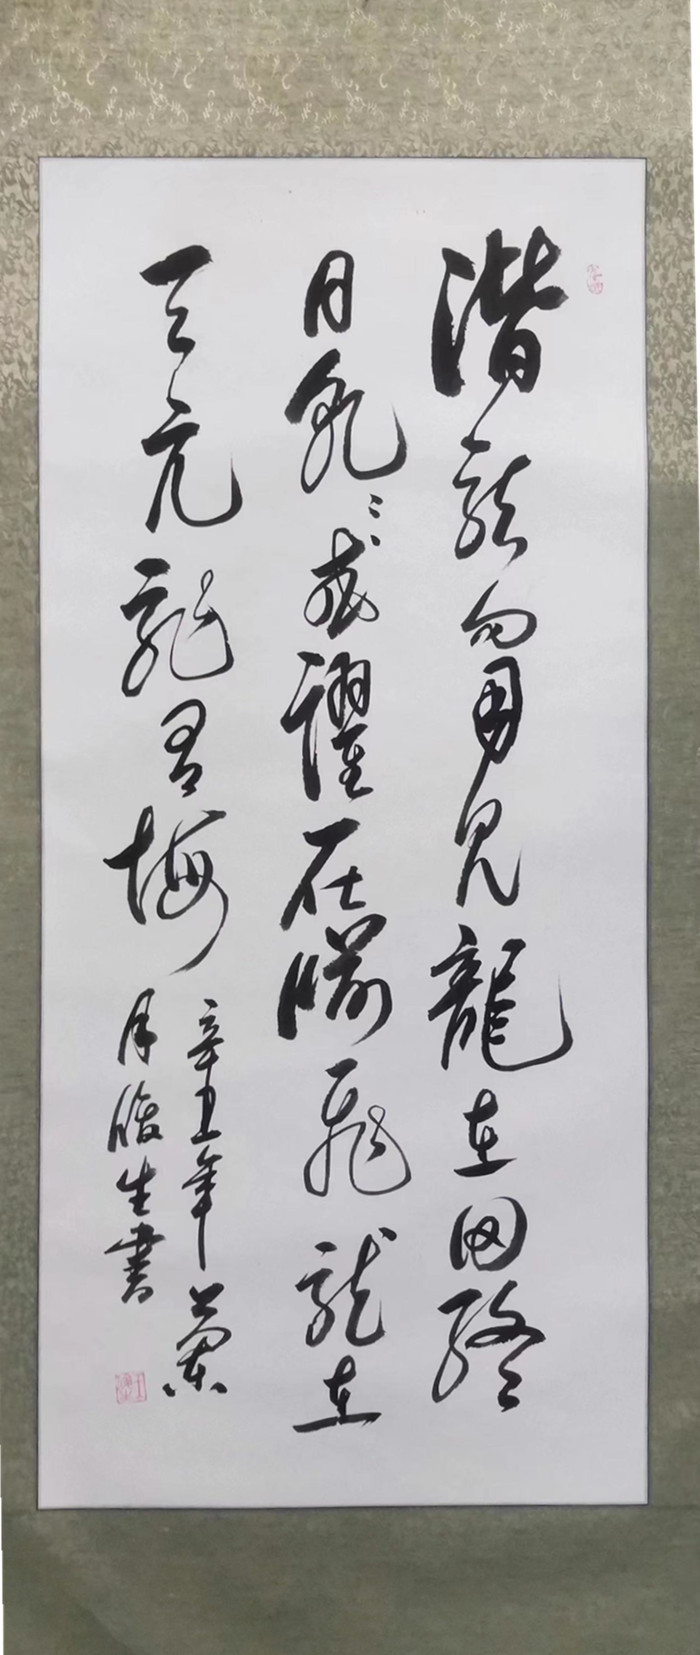 潛龍勿用見龍在田終
日乾乾或躍在淵飛龍在
天亢龍有悔
辛丑年蘭
月俊生書